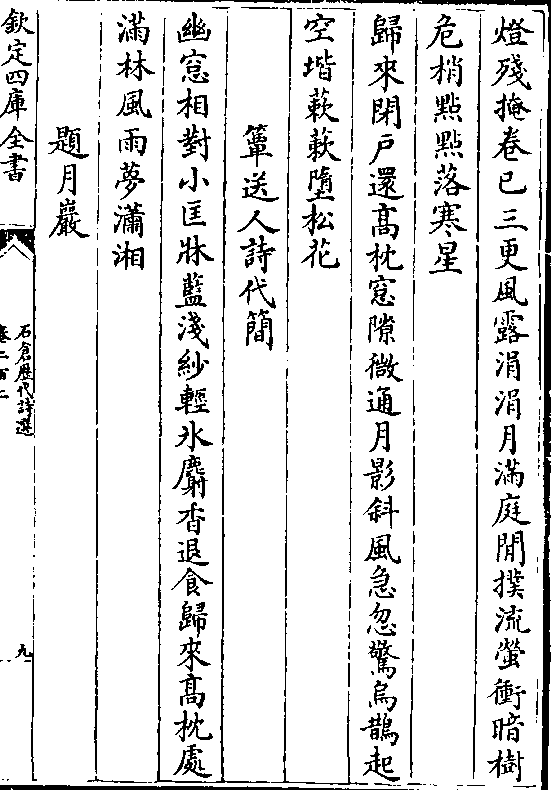 燈殘掩卷已三更風露涓涓月滿庭閒撲流螢衝暗樹
危梢點點落寒星
歸來閉戶還髙枕窓隙微通月影斜風急忽驚烏鵲起
空堦蔌蔌墮松花
簟送人詩代簡
幽窓相對小匡牀藍淺紗輕氷麝香退食歸來髙枕處
滿林風雨夢瀟湘
題月巖
欽定四庫全書
石倉歴代詩選
卷二百二
九